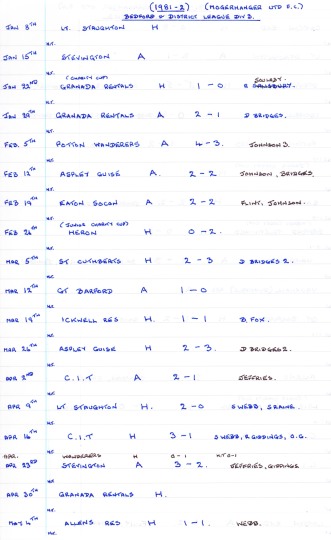 (1981-2) (MOGERHANGER UTD F.C.)
BEDFORD & DISTRICT LEAGUE DIV 3.
JAN 8TH LT. STAUGHTON H
H.T.
JAN 15TH STEVINGTON A
H.T.
(CHARITY CUP)
JAN 22ND GRANADA RENTALS H 1-0
H.T.
JAN 29TH GRANADA RENTALS A 2-1 D BRIDGES.
H.T.
FEB. 5TH POTTON WANDERERS A 4-3. JOHNSON 3.
H.T.
FEB 12TH ASPLEY GUISE A. 2-2 JOHNSON, BRIDGES.
H.T.
FEB 19TH EATON SOCON A 2-2 FLINT, JOHNSON.
H.T.
(JUNIOR CHARITY CUP)
FEB 26TH HERON H 0-2.
H.T.
MAR 5TH ST CUTHBERTS H 2-3 D BRIDGES 2.
H.T.
MAR 12TH GT BARFORD A 1-0
H.T.
MAR 19TH ICKWELL RES H. 1-1 B. FOX.
H.T.
MAR 26TH ASPLEY GUISE H 2-3. D BRIDGES 2.
H.T.
APR 2ND C.I.T A 2-1 JEFFRIES.
H.T.
APR 9TH LT STAUGHTON H. 2-0 S WEBB, S RAINE.
H.T.
APR 16TH C.I.T H 3-1 S WEBB, R GIDDINGS, O.G.
H.T.
APR. WANDERERS H 0-1 H.T 0-1
APR 23RD STEVINGTON A 3-2. JEFFRIES, GIDDINGS
H.T.
APR 30TH GRANADA RENTALS H.
H.T.
MAY 4TH ALLENS RES H 1-1. WEBB.
H.T.